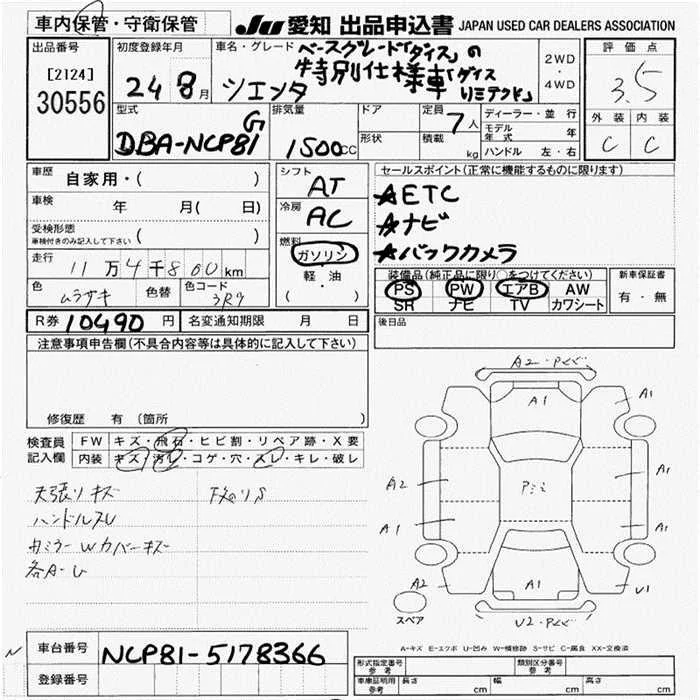 車内保管・守衛保管
JU 愛知 出品申込書 JAPAN USED CAR DEALERS ASSOCIATION
出品番号
[2124]
30556
初度登録年月
24 8月
車名・グレード
シエンタ
ベースグレード「ダイス」の
特別仕様車「ダイス
リミテッド」
2WD
・
4WD
評価点
3.5
外装 内装
C C
型式
DBA-NCP81G
排気量
1500cc
ドア
形状
定員
7人
積載
kg
ディーラー・並行
モデル年式 年
ハンドル 左・右
車歴
自家用・( )
車検
年 月(日)
受検形態
車検付きのみ記入して下さい ( )
走行
11万4千800km
色
ムラサキ
色替
色コード
3R9
シフト
AT
冷房
AC
燃料
ガソリン
・
軽・油
( ・ )
セールスポイント(正常に機能するものに限ります)
★ETC
★ナビ
★バックカメラ
装備品(純正品に限り○をつけてください)
PS PW エアB AW
SR ナビ TV カワシート
新車保証書
有・無
後日品
R券 10490円 名変通知期限 月 日
注意事項申告欄(不具合内容等は具体的に記入して下さい)
修復歴 有(箇所 )
検査員
記入欄
FW キズ・飛石・ヒビ割・リペア跡・X要
内装 キズ・汚レ・コゲ・穴・スレ・キレ・破レ
天張りキズ
ハンドルスレ
内ミラーWカバーキズ
各A・U
下廻りS
A1
A1
A2
A1
A1
A1
A2
A1
U1
スペア
A-キズ E-エクボ U-凹み W-補修跡 S-サビ C-腐食 XX-交換済
車台番号
NCP81-5178366
登録番号
形式指定番号
参考
類別区分番号
参考
車庫証明用
参考
長さ cm 幅 cm 高さ cm